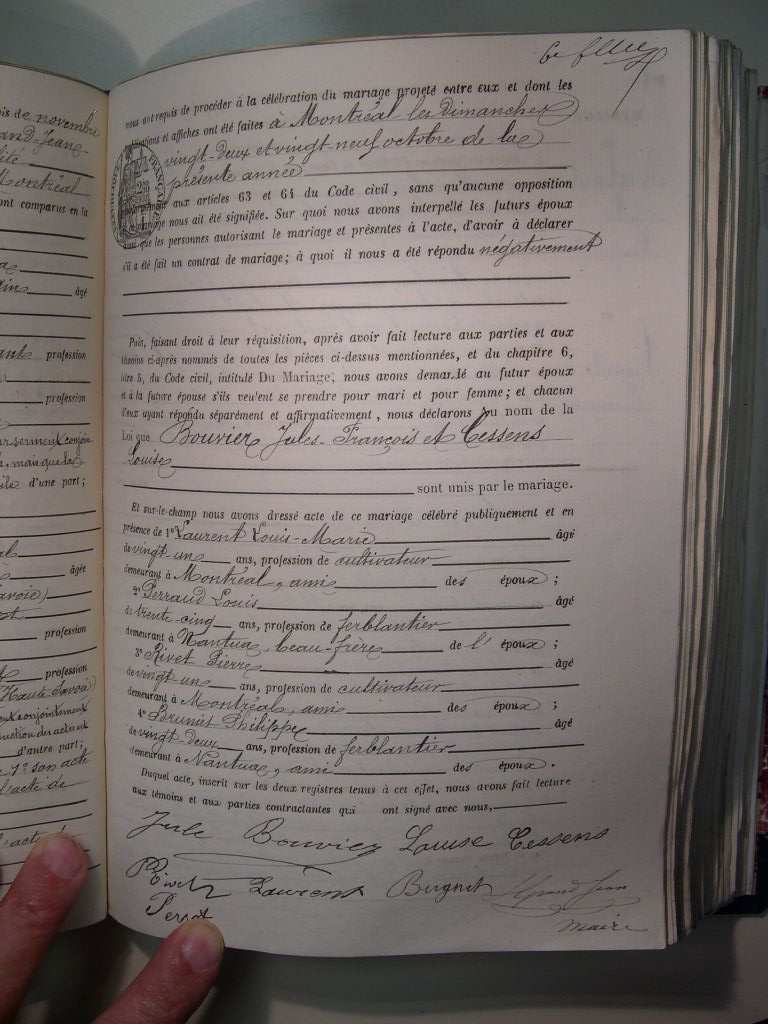 is de novembre
and-Jean-
Montréal
ont comparus en la
âgé
profession
profession
conjoin
, mais que la
d'une part ;
âgée
Savoie)
profession
profession
(Haute Savoie)
conjointement
d'autre part ;
1° son acte
l'acte de
nous ont requis de procéder à la célébration du mariage projeté entre eux et dont les
publications et affiches ont été faites à Montréal les dimanches
vingt-deux et vingt-neuf octobre de la
présente année
FRANÇAISE
conformément aux articles 63 et 64 du Code civil, sans qu'aucune opposition
au mariage nous ait été signifiée. Sur quoi nous avons interpellé les futurs époux
ainsi que les personnes autorisant le mariage et présentes à l'acte, d'avoir à déclarer
s'il a été fait un contrat de mariage; à quoi il nous a été répondu négativement
Puis, faisant droit à leur réquisition, après avoir fait lecture aux parties et aux
témoins ci-après nommés de toutes les pièces ci-dessus mentionnées, et du chapitre 6,
titre 5, du Code civil, intitulé Du Mariage, nous avons demandé au futur époux
et à la future épouse s'ils veulent se prendre pour mari et pour femme; et chacun
d'eux ayant répondu séparément et affirmativement, nous déclarons au nom de la
Loi que Bouvier Jules-François et Cessens
Louise
sont unis par le mariage.
Et sur-le-champ nous avons dressé acte de ce mariage célébré publiquement et en
présence de 1° Laurent Louis-Marie âgé
de vingt-un ans, profession de cultivateur
demeurant à Montréal, ami des époux ;
2° Perraud Louis âgé
de trente cinq ans, profession de ferblantier
demeurant à Nantua, beau-frère de l' époux ;
3° Rivet Pierre âgé
de vingt un ans, profession de cultivateur
demeurant à Montréal, ami des époux ;
4° Philippe âgé
de vingt-deux ans, profession de ferblantier
demeurant à Nantua, ami des époux .
Duquel acte, inscrit sur les deux registres tenus à cet effet, nous avons fait lecture
aux témoins et aux parties contractantes qui ont signé avec nous,
Jule Bouvier Louise Cessens
Laurent
maire